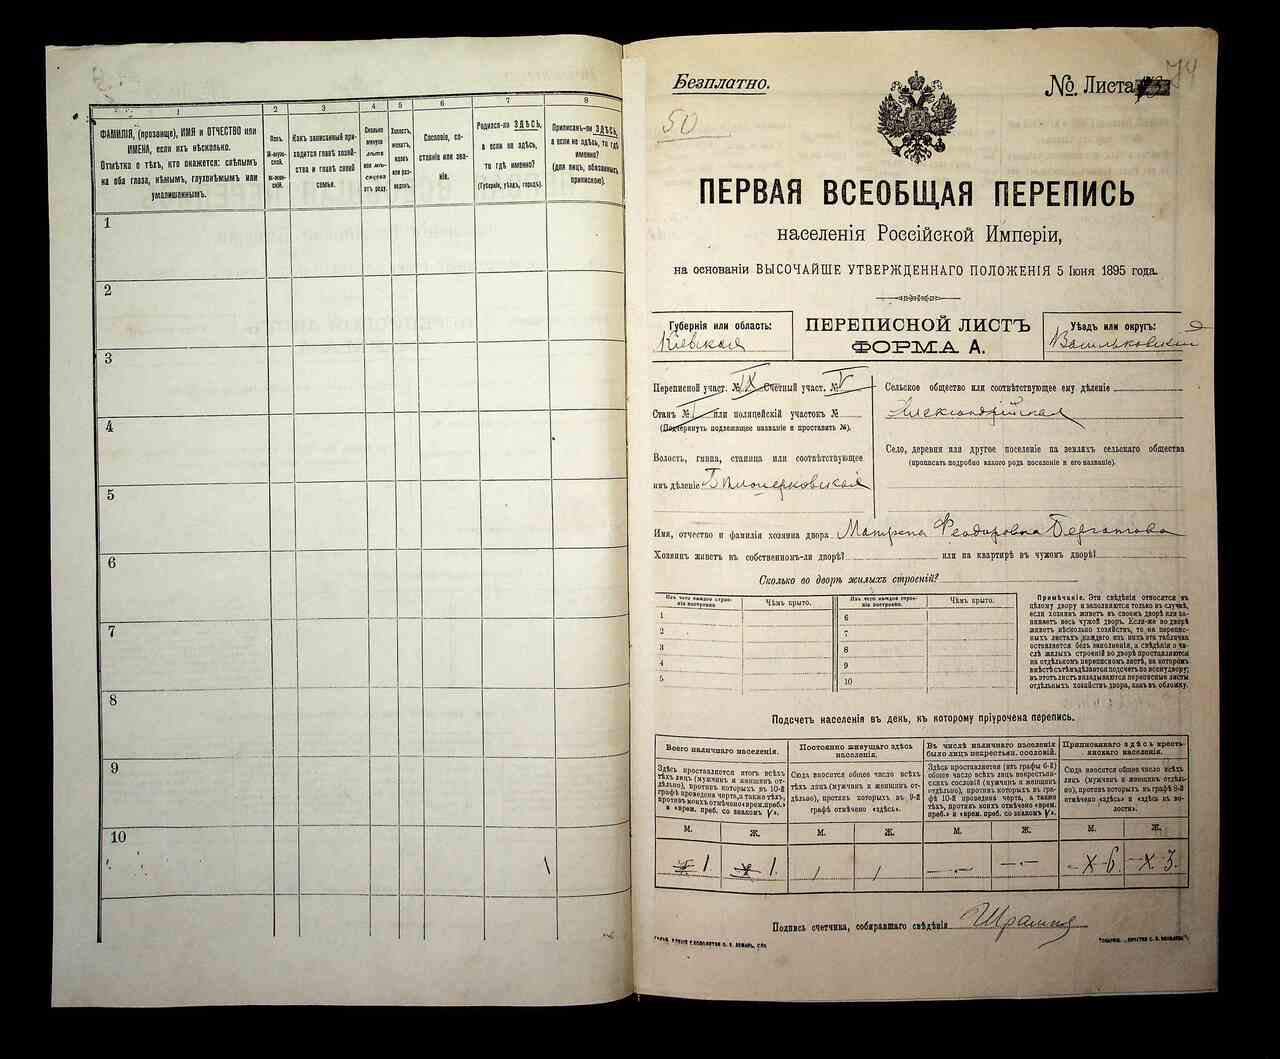 1
2
3
4
5
6
7
8
ФАМИЛІЯ, (прозвище), ИМЯ и ОТЧЕСТВО или
ИМЕНА, если ихъ нѣсколько.
Отмѣтка о тѣхъ, кто окажется: слѣпымъ
на оба глаза, нѣмымъ, глухонѣмымъ или
умалишеннымъ.
Полъ.
М-муж-
ской.
Ж-жен-
скій.
Какъ записанный при-
ходится главѣ хозяй-
ства и главѣ своей
семьи.
Сколько
минуло
лѣтъ
или мѣ-
сяцевъ
отъ роду.
Холостъ,
женатъ,
вдовъ
или раз-
веденъ.
Сословіе, со-
стояніе или зва-
ніе.
Родился-ли ЗДѢСЬ,
а если не здѣсь,
то гдѣ именно?
(Губернія, уѣздъ, городъ).
Приписанъ-ли ЗДѢСЬ,
а если не здѣсь, то гдѣ
именно?
(для лицъ, обязанныхъ
припиской).
1
2
3
4
5
6
7
8
9
10
Безплатно.
№ Листа
74
50
ПЕРВАЯ ВСЕОБЩАЯ ПЕРЕПИСЬ
населенія Россійской Имперіи,
на основаніи ВЫСОЧАЙШЕ УТВЕРЖДЕННАГО ПОЛОЖЕНІЯ 5 Іюня 1895 года.
Губернія или область:
Кіевская
ПЕРЕПИСНОЙ ЛИСТЪ
ФОРМА А.
Уѣздъ или округъ:
Васильковскій
Переписной участ. № IX Счетный участ. № V
Станъ № I или полицейскій участокъ №
(Подчеркнуть подлежащее названіе и проставить №).
Волость, гмина, станица или соотвѣтствующее
имъ дѣленіе
Сельское общество или соотвѣтствующее ему дѣленіе
Александрійская
Село, деревня или другое поселеніе на земляхъ сельскаго общества
(прописать подробно какого рода поселеніе и его названіе).
Имя, отчество и фамилія хозяина двора Матрена Феодоровна
Хозяинъ живетъ въ собственномъ-ли дворѣ? или на квартирѣ въ чужомъ дворѣ?
Сколько во дворѣ жилыхъ строеній?
Изъ чего каждое строе-
ніе построено.
Чѣмъ крыто.
Изъ чего каждое строе-
ніе построено.
Чѣмъ крыто.
1
2
3
4
5
6
7
8
9
10
Примѣчаніе. Эти свѣдѣнія относятся къ
цѣлому двору и заполняются только въ случаѣ,
если хозяинъ живетъ въ своемъ дворѣ или за-
нимаетъ весь чужой дворъ. Если-же во дворѣ
живетъ нѣсколько хозяйствъ, то на перепис-
ныхъ листахъ каждаго изъ нихъ эта табличка
оставляется безъ заполненія, а свѣдѣнія о чи-
слѣ жилыхъ строеній во дворѣ проставляются
на отдѣльномъ переписномъ листѣ, на которомъ
вмѣстѣ съ тѣмъ дѣлается подсчетъ по всему двору;
въ этотъ листъ вкладываются переписные листы
отдѣльныхъ хозяйствъ двора, какъ въ обложку.
Подсчетъ населенія въ день, къ которому пріурочена перепись.
Всего наличнаго населенія.
Постоянно живущаго здѣсь
населенія.
Въ числѣ наличнаго населенія
было лицъ некрестьян. сословій.
Приписаннаго здѣсь кресть-
янскаго населенія.
Здѣсь проставляется итогъ всѣхъ
тѣхъ лицъ (мужчинъ и женщинъ от-
дѣльно), противъ которыхъ въ 10-й
графѣ проведена черта, а также тѣхъ,
противъ коихъ отмѣчено «врем. преб.»
и «врем. преб. со знакомъ V».
Сюда вносится общее число всѣхъ
тѣхъ лицъ (мужчинъ и женщинъ от-
дѣльно), противъ которыхъ въ 9-й
графѣ отмѣчено «здѣсь».
Здѣсь проставляется (изъ графы 6-й)
общее число всѣхъ лицъ некрестьян-
скихъ сословій (мужчинъ и женщинъ
отдѣльно), противъ которыхъ въ графѣ
10-й проведена черта, а также
тѣхъ, противъ коихъ отмѣчено «врем.
преб.» и «врем. преб. со знакомъ V».
Сюда вносится общее число всѣхъ
лицъ (мужчинъ и женщинъ отдѣль-
но), противъ которыхъ въ графѣ 8-й
отмѣчено «здѣсь» и «здѣсь въ во-
лости».
М.
Ж.
М.
Ж.
М.
Ж.
М.
Ж.
1.
1.
/
/
—.—
—.—
–х 6.
–х 3.
Подпись счетчика, собиравшаго свѣдѣнія